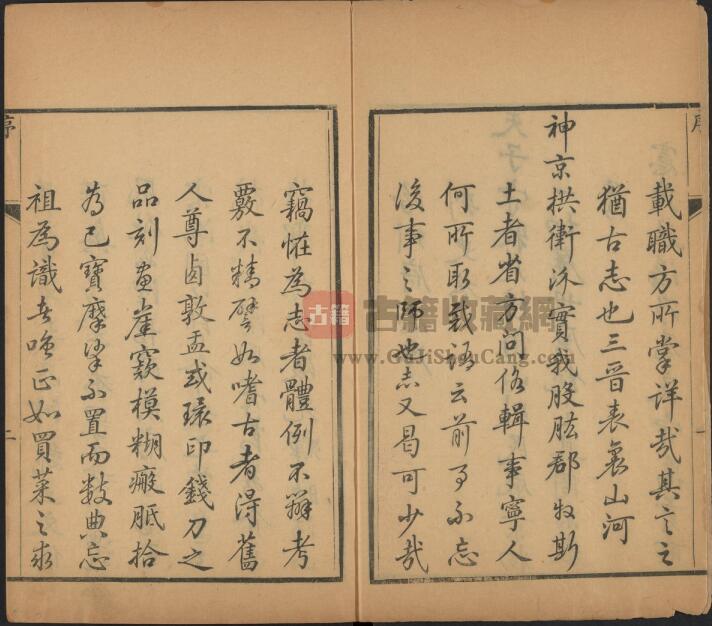 載職方所掌詳哉其言之
猶古志也三晉表裏山河
神京拱衛沵實我股肱郡牧斯
土者省方問俗輯事寧人
何所取哉語云前事不忘
後事之師也志又曷可少哉
竊恠為志者體例不辨考
覈不精譬如嗜古者得舊
人尊卣敦盂或環印錢刀之
品刻畫崖窾模糊瘢胝拾
為己寶摩挲不置而數典忘
祖為識者嗤正如買菜之求
序
一
序
二
古籍 古籍收藏網
www.GuJiShuCang.com